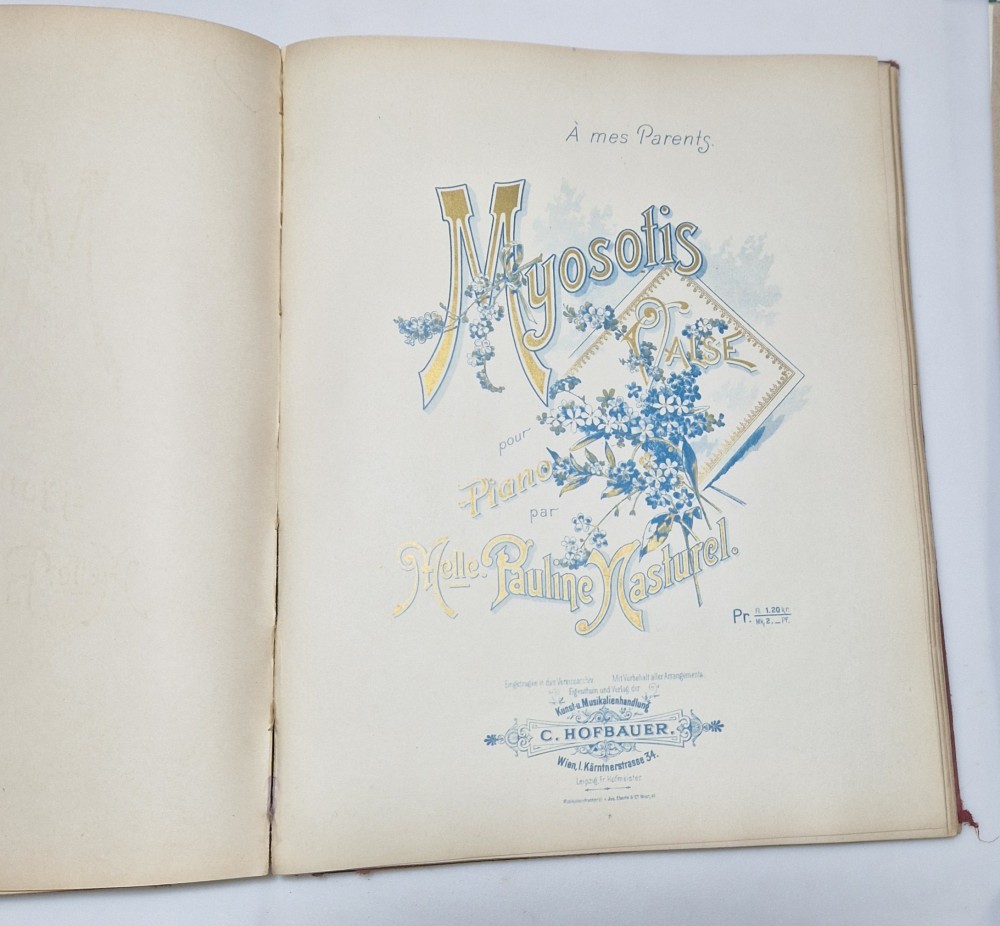 À mes Parents.
Myosotis
Valse
pour
Piano
par
Melle. Pauline Nasturel.
Pr. fl. 1.20 kr.
Mk. 2._ Pf.
Eingetragen in das Vereinsarchiv. Mit Vorbehalt aller Arrangements.
Eigenthum und Verlag der
Kunst-u. Musikalienhandlung
C. HOFBAUER.
Wien, I. Kärntnerstrasse 34.
Leipzig, Fr. Hofmeister.
Jos. Eberle & Co. Wien,